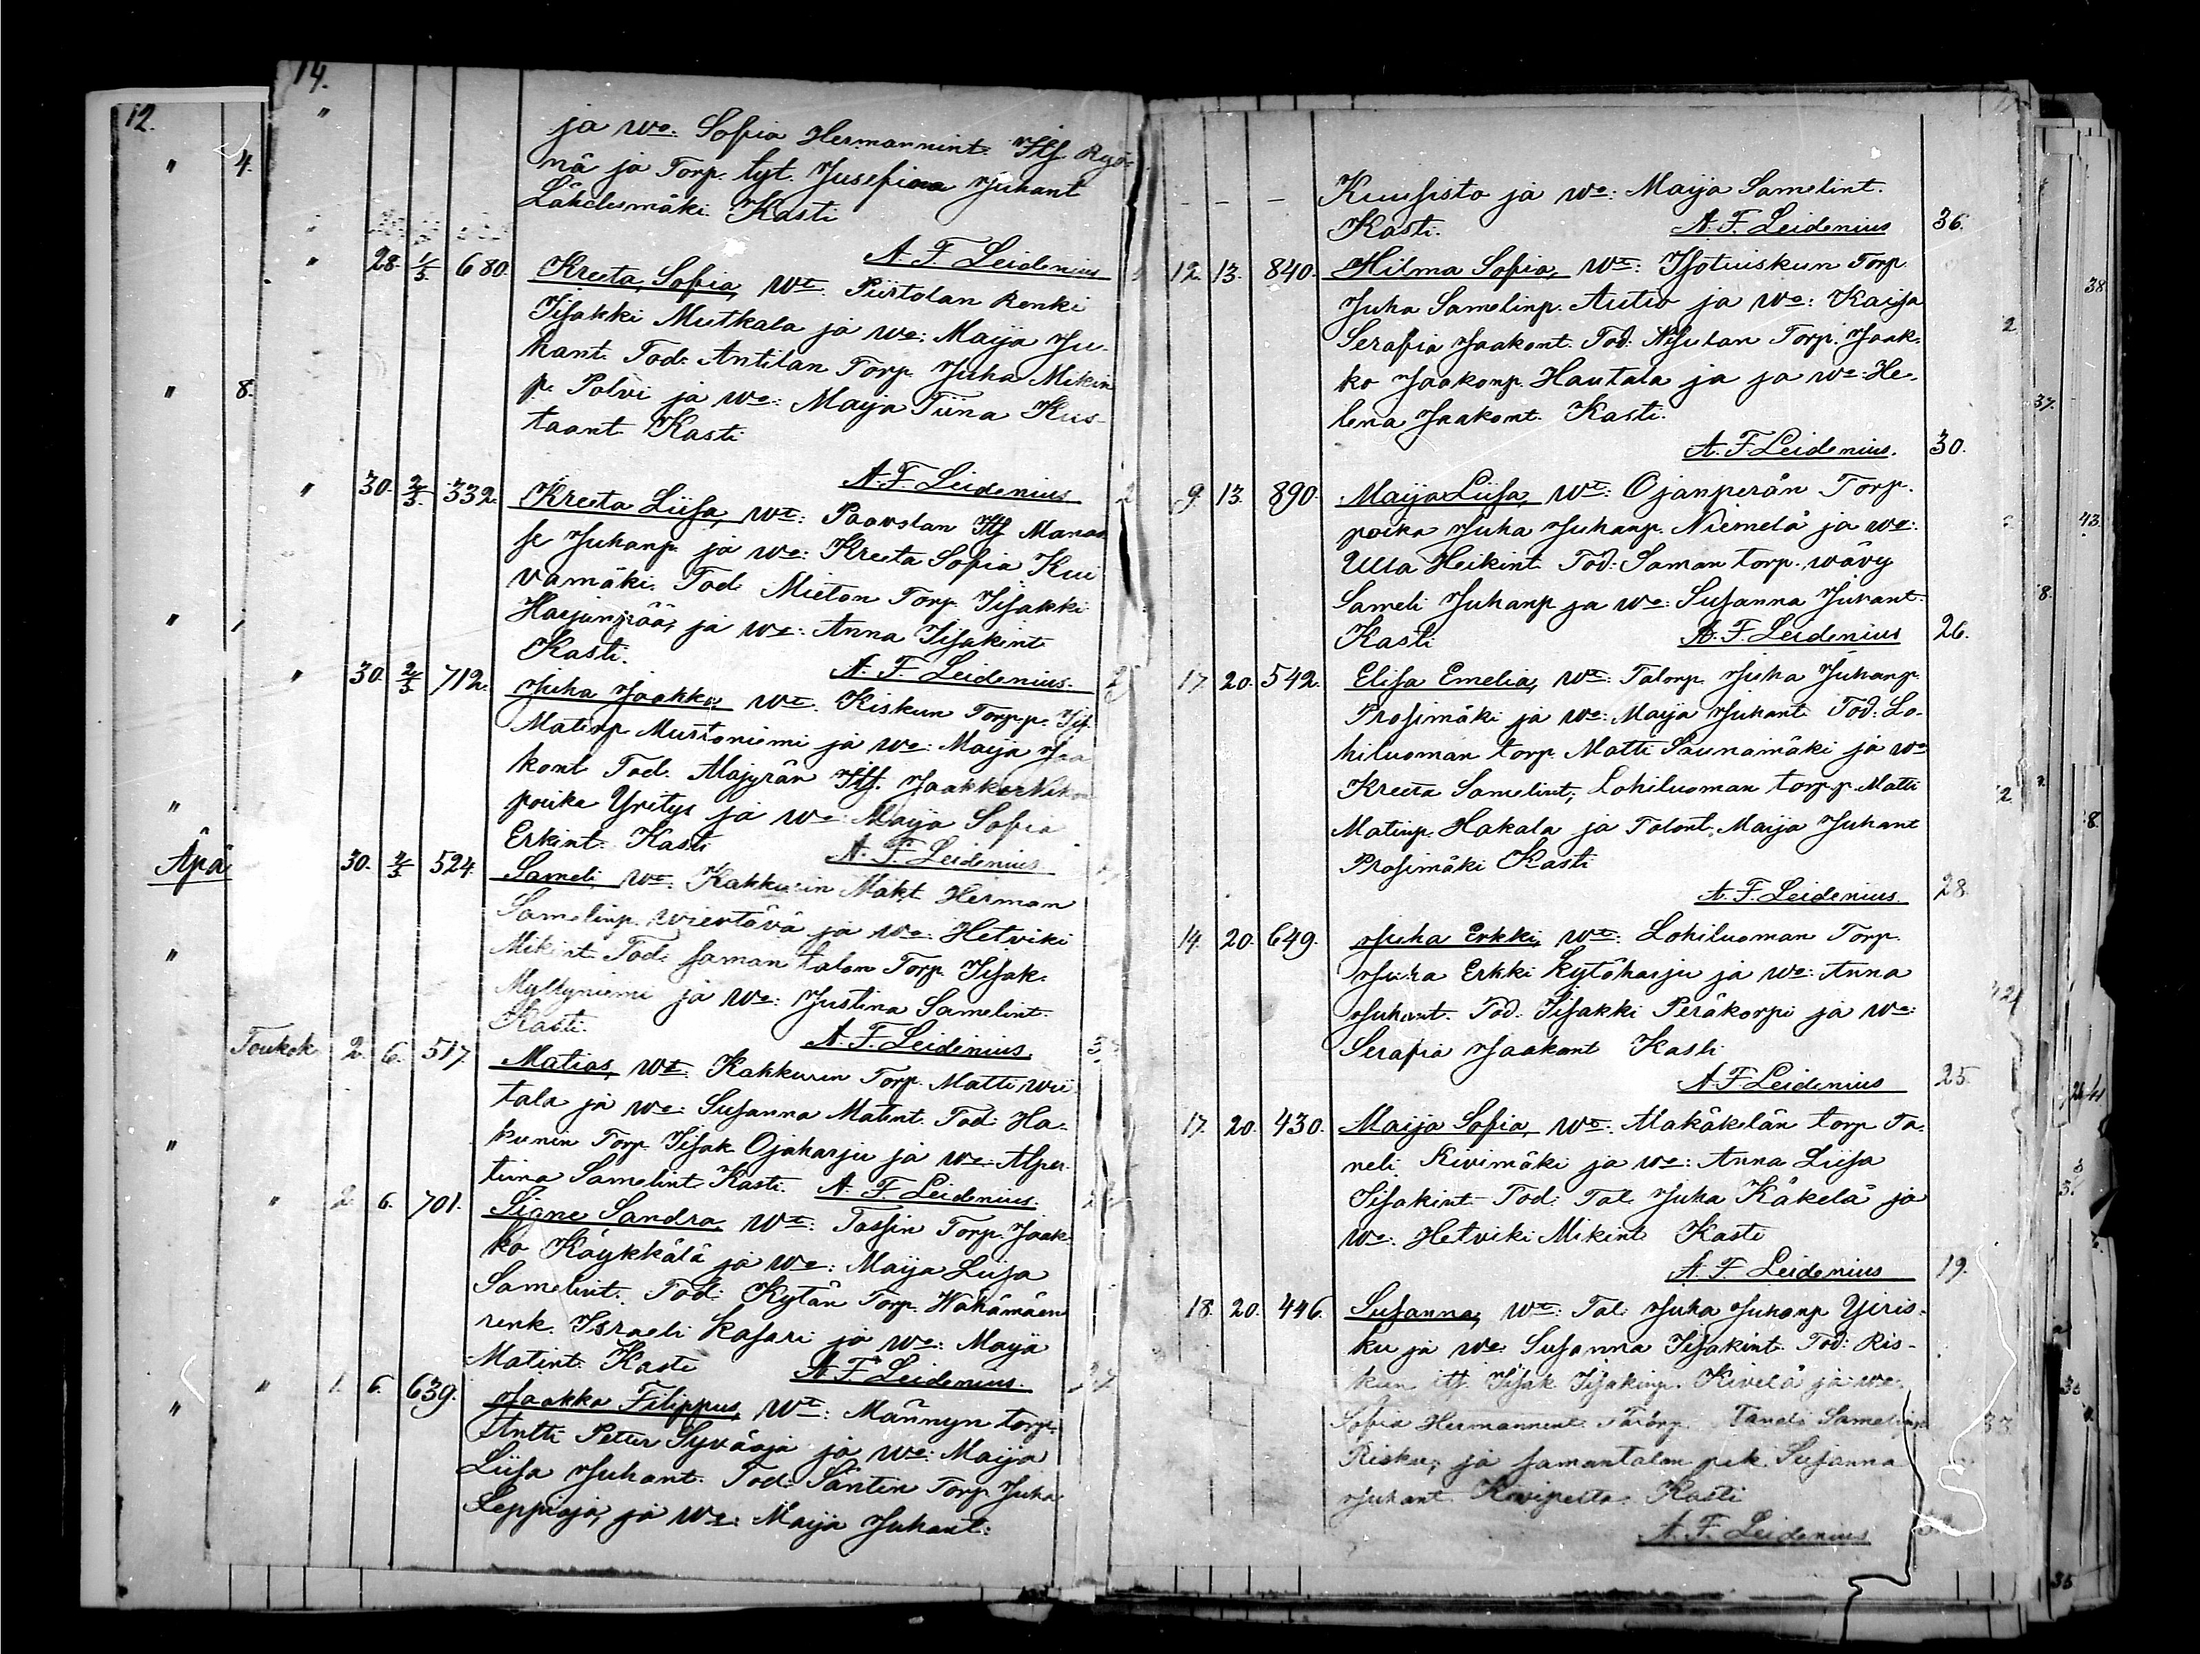 14.
12.
" 4.
"
ja wo: Sofia Hermannint. Itf. Ryö-
nä ja Torp. tyt. Jusefiina Juhant
Lähdesmäki Kasti
A. F. Leidenius
" 28. 1/5. 680. Kreeta Sofia, wt. Piirtolan Renki
Iisakki Mutkala ja wo: Maija Ju-
hant. Tod: Antilan Torp. Juha Mikin
p. Polvi ja wo: Maija Tiina Kus-
taant. Kasti
A. F. Leidenius
" 8.
" 30. 2/5. 332. Kreeta Liisa, wt: Paavolan Itf Manas
se Juhanp. ja wo: Kreeta Sofia Kui
vamäki. Tod: Mieton Torp. Iisakki
Harjunpää, ja wo: Anna Iisakint
Kasti. A. F. Leidenius.
" 30. 2/5. 712. Juha Jaakko, wt. Kiskun Torpp. Iis.
Matinp. Mustoniemi ja wo: Maija Jaa
kont Tod. Alajyrän Itf. Jaakko
poika Yritys ja wo: Maija Sofia
Erkint. Kasti A. F. Leidenius.
Apä
30. 2/5. 524. Sameli, wt. Kahkurin Mäkt Herman
Samelinp. Wiertävä ja wo: Hetviki
Mikint. Tod: saman talon Torp. Iisak.
Myllyniemi ja wo: Justina Samelint.
Kasti. A. F. Leidenius.
Toukok 2. 6. 517. Matias, wt: Kahkurin Torp. Matti Wii
tala ja wo: Susanna Matint. Tod: Ha-
kunin Torp. Iisak Ojaharju ja wo: Alper-
tiina Samelint. Kasti. A. F. Leidenius.
" 2. 6. 701. Signe Sandra, wt: Tassin Torp. Jaak-
ko Käykkälä ja wo: Maija Liisa
Samelint. Tod: Kytän Torp. Wähämäen
renk. Israeli Kasari ja wo: Maija
Matint. Kasti A. F. Leidenius.
" 1. 6. 639. Jaakko Filippus, wt: Männyn torp.
Antti Petter Syväoja ja wo: Maija
Liisa Juhant. Tod: Säntin Torp. Juha
Leppioja, ja wo: Maija Juhant:
- - - Kuusisto ja wo: Maija Samelint.
Kasti. A. F. Leidenius 36.
12. 13. 840. Hilma Sofia, wt: Isotuiskun Torp.
Juha Samelinp. Autio ja wo: Kaisa
Serafia Jaakont. Tod: Torp. Jaak-
ko Jaakonp. Hautala ja ja wo: He-
lena Jaakont. Kasti.
A. F. Leidenius. 30.
9. 13. 890. Maija Liisa, wt: Ojanperän Torp.
poika Juha Juhanp. Niemelä ja wo:
Ulla Heikint. Tod: Saman torp. wävy
Sameli Juhanp ja wo: Susanna Juhant.
Kasti A. F. Leidenius 26.
17. 20. 542. Elisa Emelia, wt: Talonp. Juha Juhanp.
Prosimäki ja wo: Maija Juhant. Tod: Lo-
hiluoman torp. Matti Saunamäki ja wo
Kreeta Samelint; Lohiluoman torp.p. Matti
Matinp. Hakala ja Talont. Maija Juhant
Prosimäki Kasti
A. F. Leidenius. 28.
14. 20. 649. Juha Erkki, wt: Lohiluoman Torp.
Juha Erkki Kytöharju ja wo: Anna
Juhant. Tod: Iisakki Peräkorpi ja wo:
Serafia Jaakont Kasti
A. F. Leidenius 25.
17. 20. 430. Maija Sofia, wt. Alakäkelän torp Ta-
neli Kivimäki ja wo: Anna Liisa
Iisakint Tod: Tal. Juha Käkelä ja
wo: Hetviki Mikint Kasti
A. F. Leidenius 19.
18. 20. 446. Susanna, wt: Tal: Juha Juhonp Yliris-
ku ja wo: Susanna Iisakint. Tod: Ris-
kun itf. Iisak Iisakinp. Kivelä ja wo:
Sofia Hermannint. Taneli Samelinp.
Risku, ja samantalon piik. Susanna
Juhant. Kasti
A. F. Leidenius